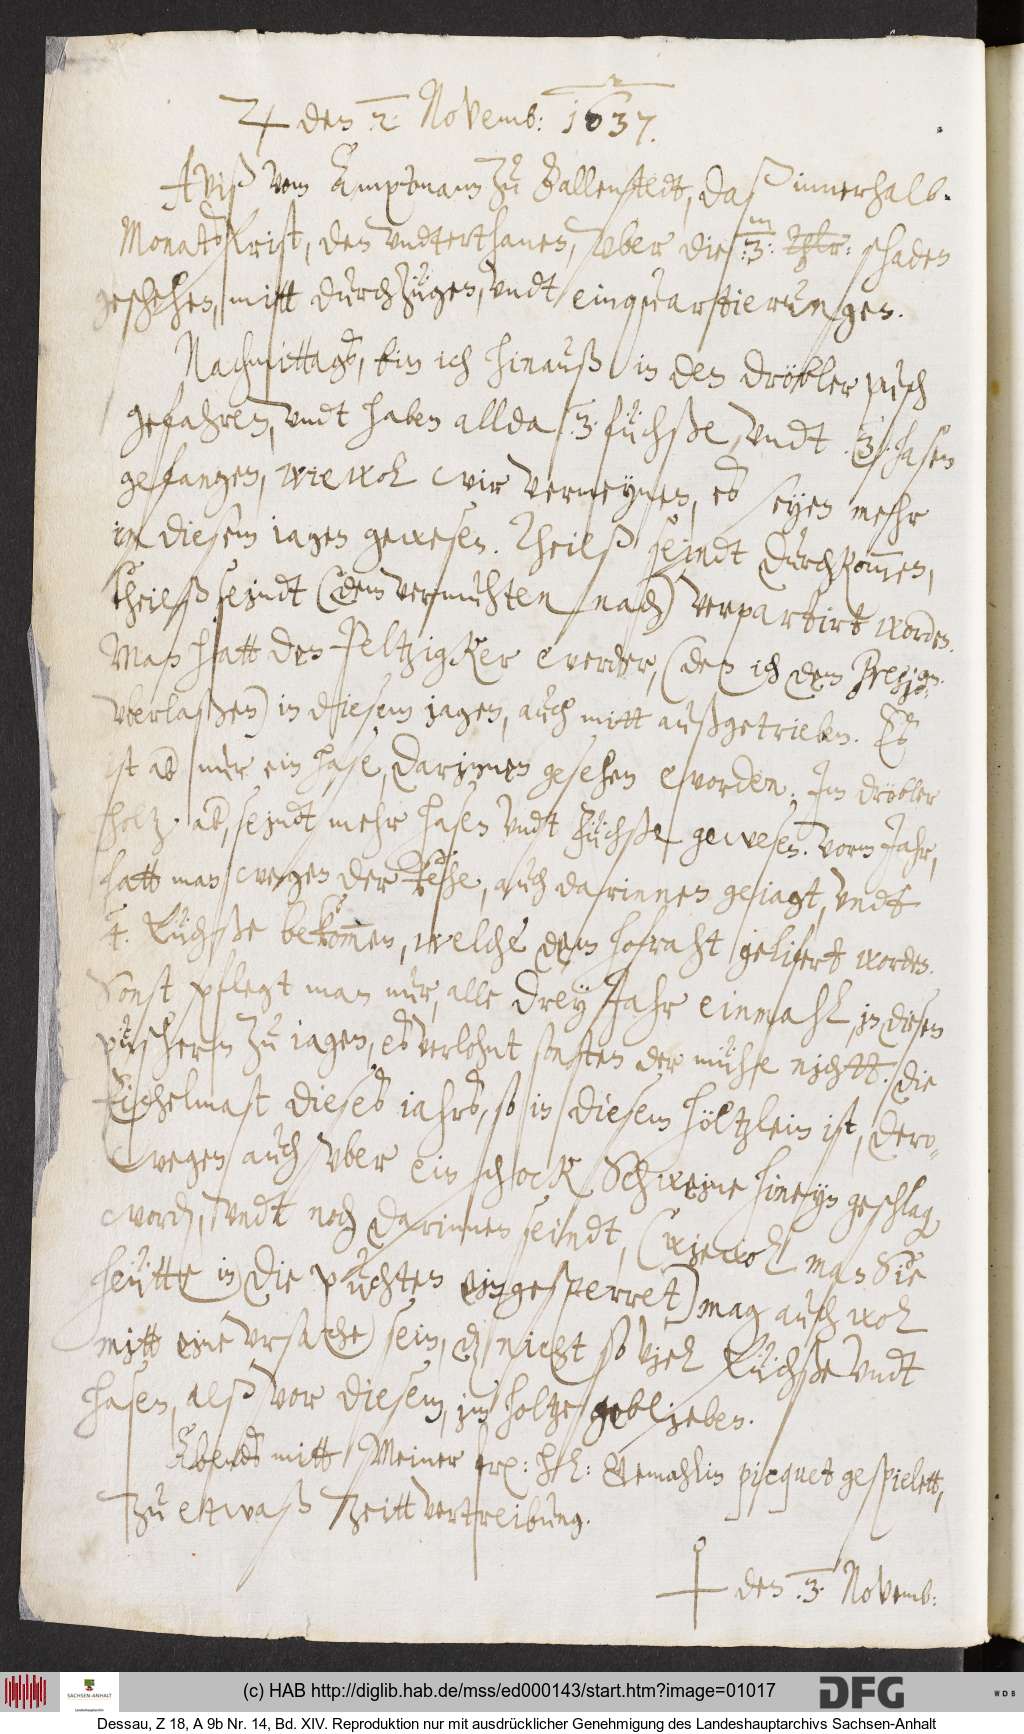 ♃ den 2. Novemb: 1637.
Aviß vom Amptmann zu Ballenstedt, daß innerhalb
Monatsfrist, den vndterthanen, vber die .3. m Thlr: schaden
geschehen, mitt durchzügen, vndt einquartierungen.
Nachmittags, bin ich hinauß in den Dröbler pusch
gefahren, vndt haben allda .3. füchße, vndt .3. hasen
gefangen, wiewol wir vermeynen, es seyen mehr
in diesem iagen gewesen. Theilß seindt durchkommen,
theilß seindt (dem vermuhten nach) verpartirt worden.
Man hatt den Peltzigker werder, (den ich dem
vberlaßen) in diesem jagen, auch mitt außgetrieben. Es
ist ab nur ein hase, darinnen gesehen worden. Im Dröbler
holtz ab, seindt mehr hasen vndt füchße gewesen. Vorm Jahr,
hatt man wegen der , auch darinnen geiagt, vndt
4. Füchße bekommen, welche dem hofraht gelifert worden.
Sonst pflegt man nur, alle drey Jahr einmahl, in diesen
püschern zu iagen, es verlohnt sonsten der mühe nichtt. Die
Eichelmast dieses iahrs, so in diesem höltzlein ist, dero-
wegen auch vber ein schock Schweine hineyn geschlag
word, vndt noch darinnen seindt, (wiewol man Sie
heütte in die puchten eingesperret) mag auch wol
mitt eine vrsache sein, d nicht so viel Füchße vndt
hasen, alß vor diesem, im holtze geblieben.
Abends mitt Meiner frx: h l: Gemahlin picquet gespielett,
zu etwaß Zeittvertreibung.
♀ den .3. Novemb:
(c) HAB http://diglib.hab.de/mss/ed000143/start.htm?image=01017
SACHSEN-ANHALT
DFG
WDB
Dessau, Z 18, A 9b Nr. 14, Bd. XIV. Reproduktion nur mit ausdrücklicher Genehmigung des Landeshauptarchivs Sachsen-Anhalt